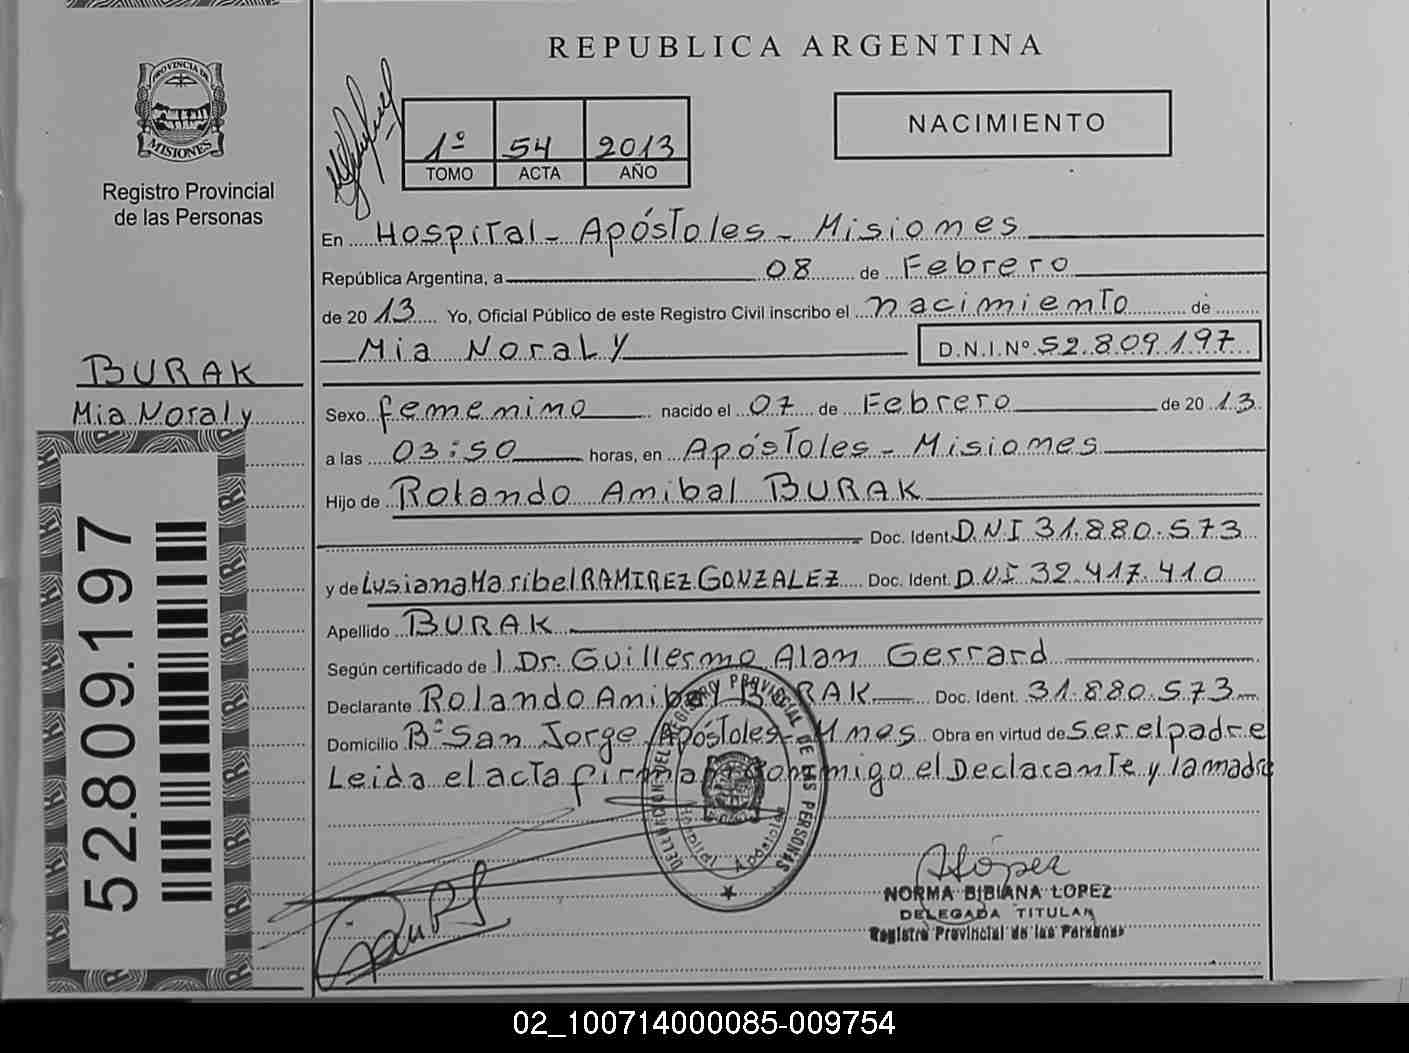 REPUBLICA ARGENTINA
PROVINCIA DE
MISIONES
Registro Provincial
de las Personas
1º 54 2013
TOMO ACTA AÑO
NACIMIENTO
En Hospital - Apóstoles - Misiones
República Argentina, a 08 de Febrero
de 2013 Yo, Oficial Público de este Registro Civil inscribo el nacimiento de
Mia Noraly D.N.I.Nº 52.809.197
BURAK
Mia Noraly
Sexo femenino nacido el 07 de Febrero de 2013
a las 03:50 horas, en Apóstoles - Misiones
Hijo de Rolando Anibal BURAK
Doc. Ident. DNI 31.880.573
y de Lusiana Maribel RAMIREZ GONZALEZ Doc. Ident. DNI 32.417.410
Apellido BURAK
Según certificado de l Dr. Guillermo Alan Gerrard
Declarante ROLANDO Anibal BURAK Doc. Ident. 31.880.573
Domicilio Bº San Jorge, Apóstoles - Mnes Obra en virtud de ser el padre
Leida el acta firman conmigo el Declarante y la madre
52.809.197
DELEGACION DEL REGISTRO PROVINCIAL DE LAS PERSONAS
Hospital Apóstoles
NLópez
NORMA BIBIANA LOPEZ
DELEGADA TITULAR
Registro Provincial de las Personas
02_100714000085-009754